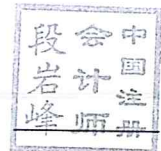 中国注册
会计师
段岩峰